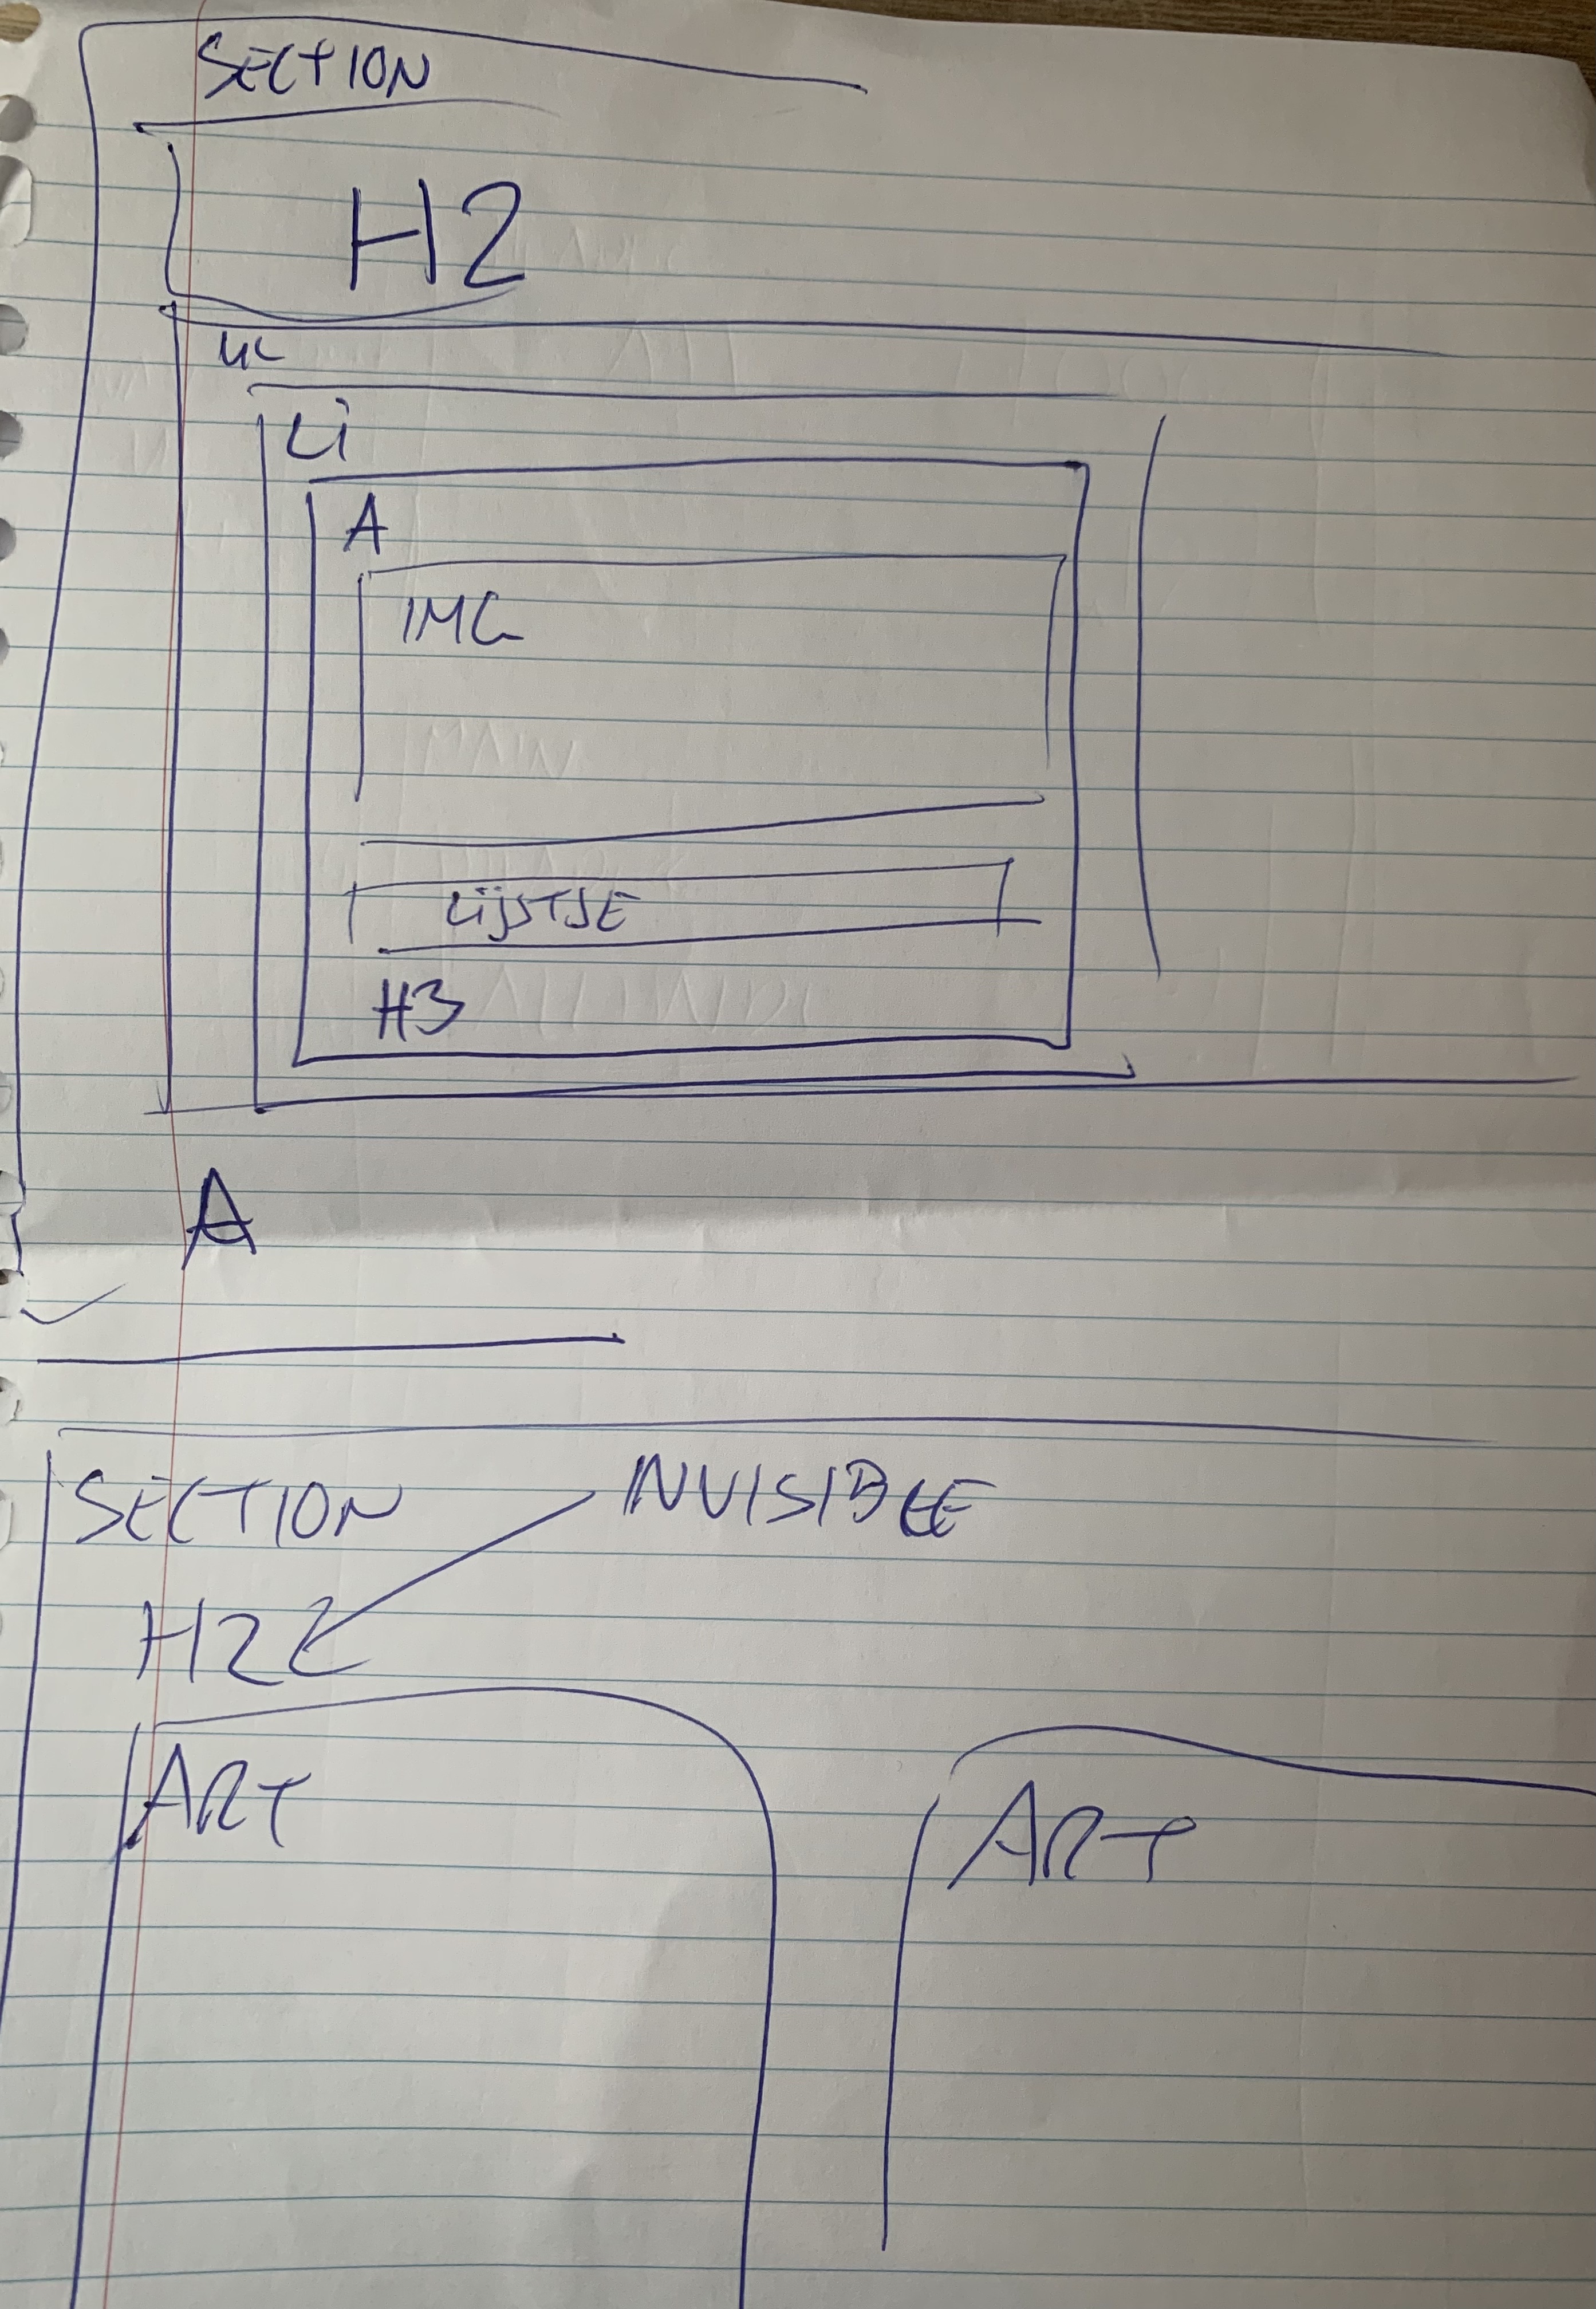 SECTION
H2
UL
Li
A
IMG
LIJSTJE
H3
A
SECTION INVISIBLE
H2
ART ART